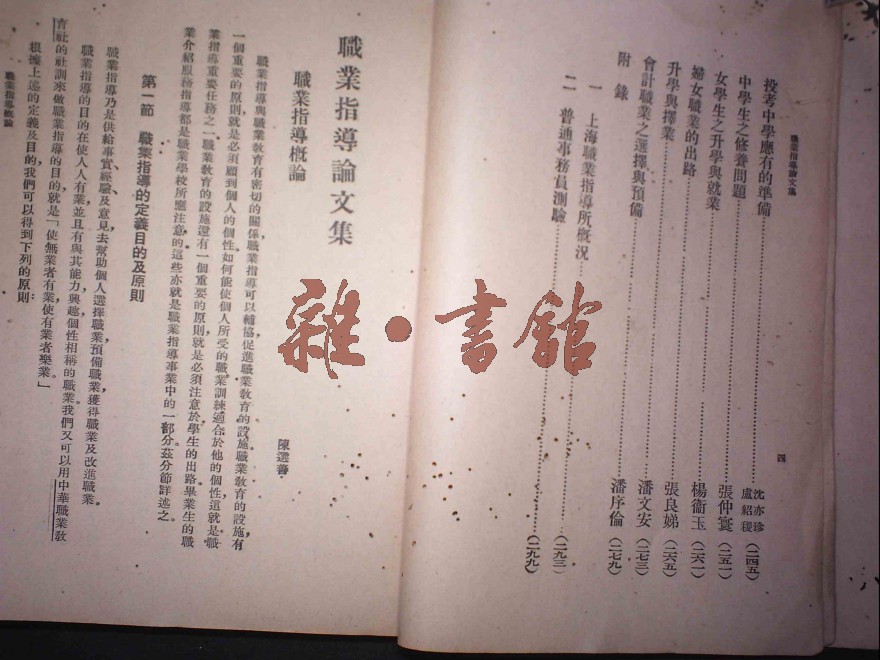 職業指導論文集
四
投考中學應有的準備……沈亦珍 盧紹稷(二四五)
中學生之修養問題……張仲寰(二五一)
女學生之升學與就業……楊衞玉(二六一)
婦女職業的出路……張良娣(二六五)
升學與擇業……潘文安(二七三)
會計職業之選擇與預備……潘序倫(二七九)
附錄
一 上海職業指導所概況……(二九三)
二 普通事務員測驗……(二九九)
職業指導論文集
職業指導概論
陳選善
職業指導與職業教育有密切的關係職業指導可以輔協促進職業教育的設施職業教育的設施有
一個重要的原則就是必須顧到個人的個性如何能使個人所受的職業訓練適合於他的個性這就是職
業指導重要任務之一職業教育的設施還有一個重要的原則就是必須注意於學生的出路畢業生的職
業介紹服務指導都是職業學校所應注意的這些亦就是職業指導事業中的一部分茲分節詳述之。
第一節 職業指導的定義目的及原則
職業指導乃是供給事實經驗及意見去幫助個人選擇職業,預備職業,獲得職業及改進職業。
職業指導的目的在使人人有業並且有與其能力興趣個性相稱的職業。我們又可以用中華職業教
育社的社訓來做職業指導的目的,就是「使無業者有業,使有業者樂業。」
根據上述的定義及目的,我們可以得到下列的原則:
職業指導概論
雜·書館